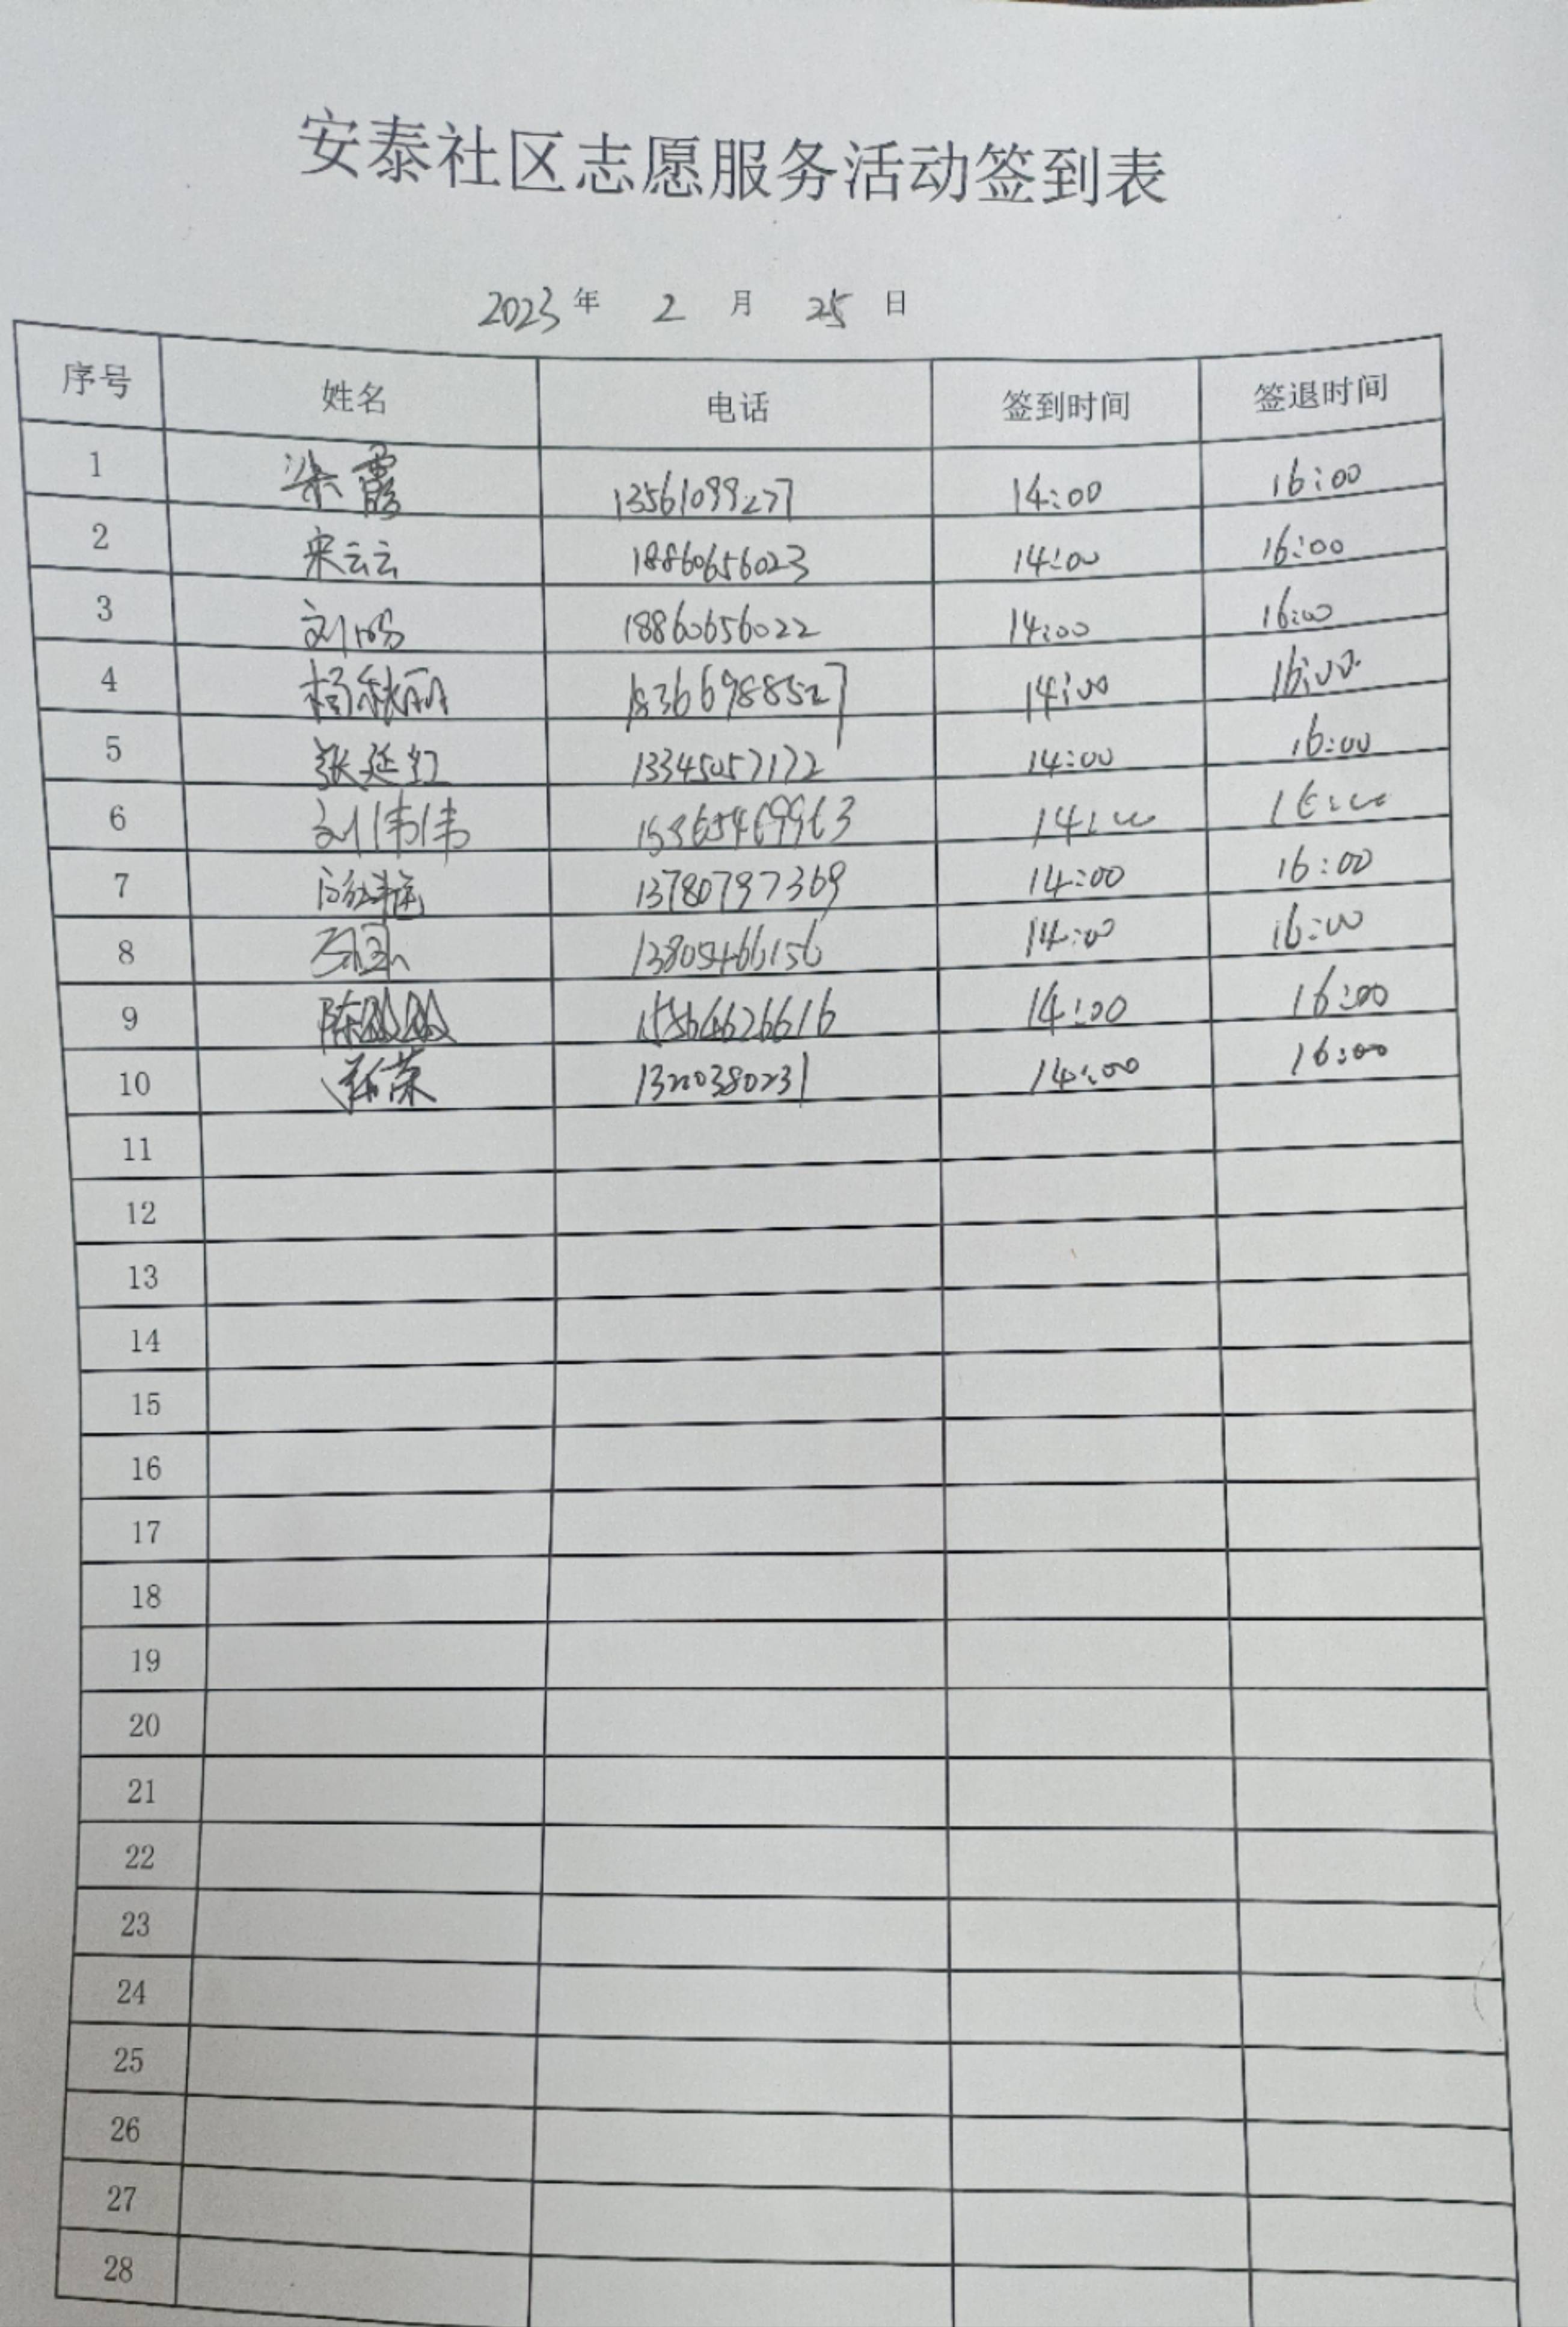 安泰社区志愿服务活动签到表
2023 年 2 月 25 日
序号 姓名 电话 签到时间 签退时间
1 梁霞 13561099277 14:00 16:00
2 宋云云 18860656023 14:00 16:00
3 刘 18860656022 14:00 16:00
4 杨秋丽 18366988527 14:00 16:00
5 张延红 13345057172 14:00 16:00
6 刘伟伟 14:00 16:00
7 13780797369 14:00 16:00
8 13805466156 14:00 16:00
9 陈 15864626616 14:00 16:00
10 13220380231 14:00 16:00
11
12
13
14
15
16
17
18
19
20
21
22
23
24
25
26
27
28